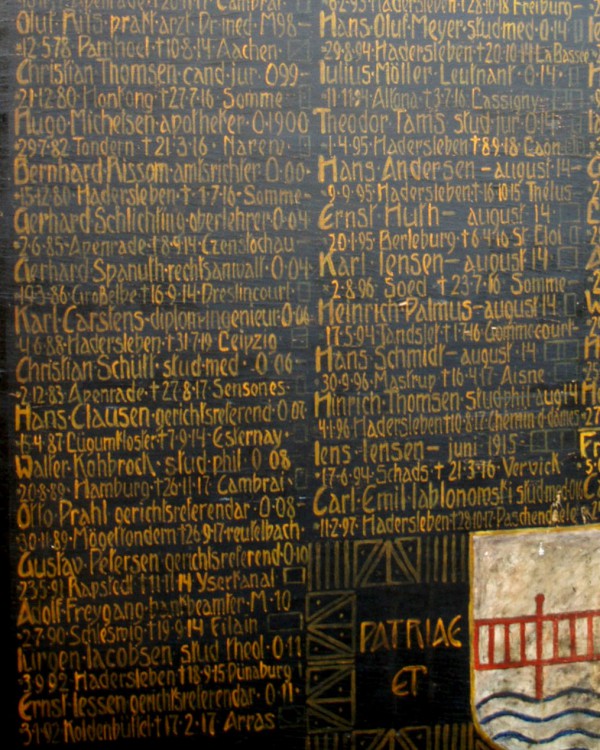 Oluf Ries prakt arzt Dr med M98-
*12 5 78 Pamhoel †10·8·14 Aachen
Christian Thomsen·cand·jur O99-
21·12·80 Honkong †27·7·16 Somme
Hugo·Michelsen·apotheker·O·1900
29·7·82 Tondern †21·3·16 Narew
Bernhard Rissom·amtsrichter O·00·
·15·12·80 Hadersleben †·1·7·16·Somme-
Gerhard Schlichting·oberlehrer·O·04
·2·6·85·Apenrade·†8·9·14·Czenstochau
Gerhard Spanuth·rechtsanwalt·O·04·
·19·3·86·Großelbe†16·9·14·Dreslincourt
Karl·Carstens·diplom·ingenieur·O·06
4·6·88·Hadersleben·†31·7·19 Leipzig
Christian·Schütt stud·med·O 06-
·2·12·83 Apenrade·†27·8·17 Sensones·
Hans·Clausen·gerichtsreferend·O 07
·15·4·87 Lügumkloster†7·9·14·Esternay·
Walter·Kohbrock·stud·phil·O 08
20·8·89·Hamburg†26·11·17 Cambrai
Otto·Prahl gerichtsreferendar·O·08·
·30·11·89·Mögeltondern†26 9·17·
Gustav·Petersen·gerichtsreferend·O·10
23·5·91 Rapsted †11·11·14 Yserkanal
Adolf·Freygang·bankbeamter·M·10
·2·7·90·Schleswig †19·9·14
Jürgen·Jacobsen stud theol·O·11
3 9 92 Hadersleben†18·9·15 Dünaburg
Ernst Jessen gerichtsreferendar·O·11·
3·1·92 Koldenbüttel†17·2·17 Arras
Hadersleben †28·10·18 Freiburg-
Hans·Oluf·Meyer·studmed·O·14
·29·8·94·Hadersleben†20·10·14 La Bassée
Julius·Möller Leutnant·O·14·
·11·11·94·Altona †3·7·16 Lassigny-
Theodor Tams stud jur O·14·
·1·4·95·Hadersleben†8 9 18 Caon
Hans Andersen-august·14-
·9·9·95·Hadersleben†16·10·15 Thélus-
Ernst Huth-august 14·
20·1·95·Berleburg†6·4·16 St Eloi
Karl Jensen-august·14·
·2·8·96·Soed †23·7·16 Somme-
Heinrich·Palmus-august 14
·17·5·94·Tandslet †1·7·16·Gommecourt-
Hans Schmidt-august·14
30·9·96·Mastrup †16·4·17 Aisne
Hinrich·Thomsen·stud phil·aug14
4·1·96 Hadersleben†10·8·17·Chemin d dames
Jens·Jensen-juni 1915-
·17·6·94·Schads †21·3·16·Vervick
Carl·Emil·Jablonowski studmed
·11·2·97·Hadersleben†28·10·17·Paschendaele
PATRIAE
ET